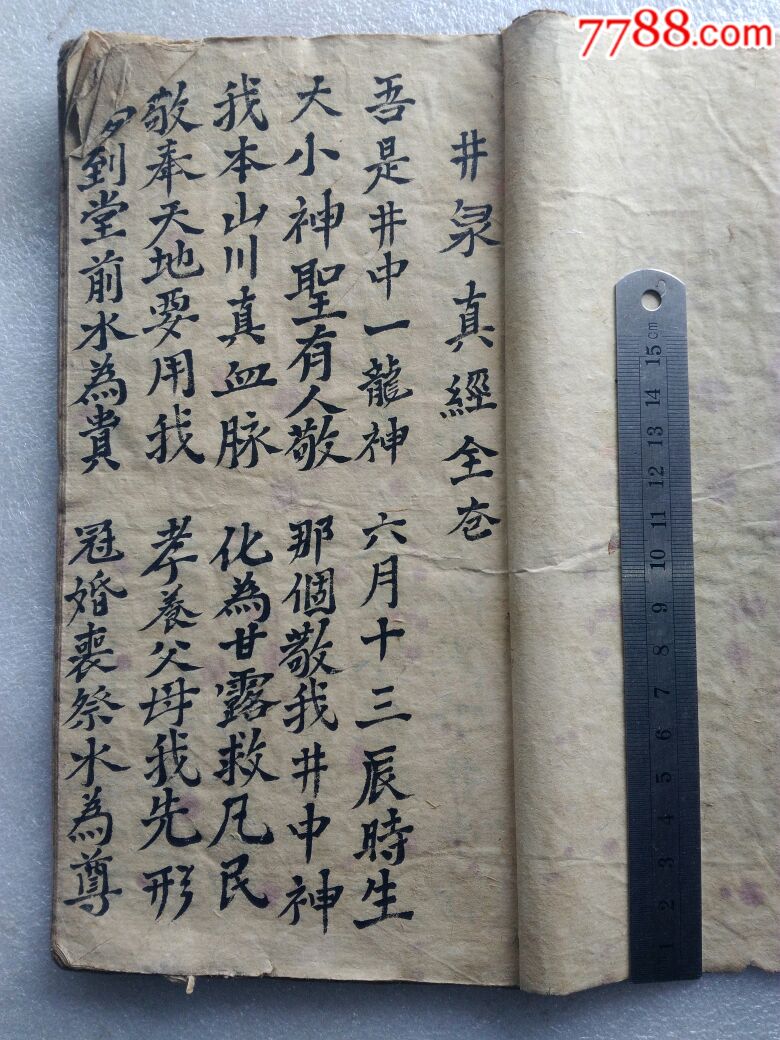 7788.com
井泉真經全卷
吾是井中一龍神 六月十三辰時生
大小神聖有人敬 那個敬我井中神
我本山川真血脉 化為甘露救凡民
敬奉天地要用我 孝養父母我先形
到堂前水為貴 冠婚喪祭水為尊
1 2 3 4 5 6 7 8 9 10 11 12 13 14 15 cm